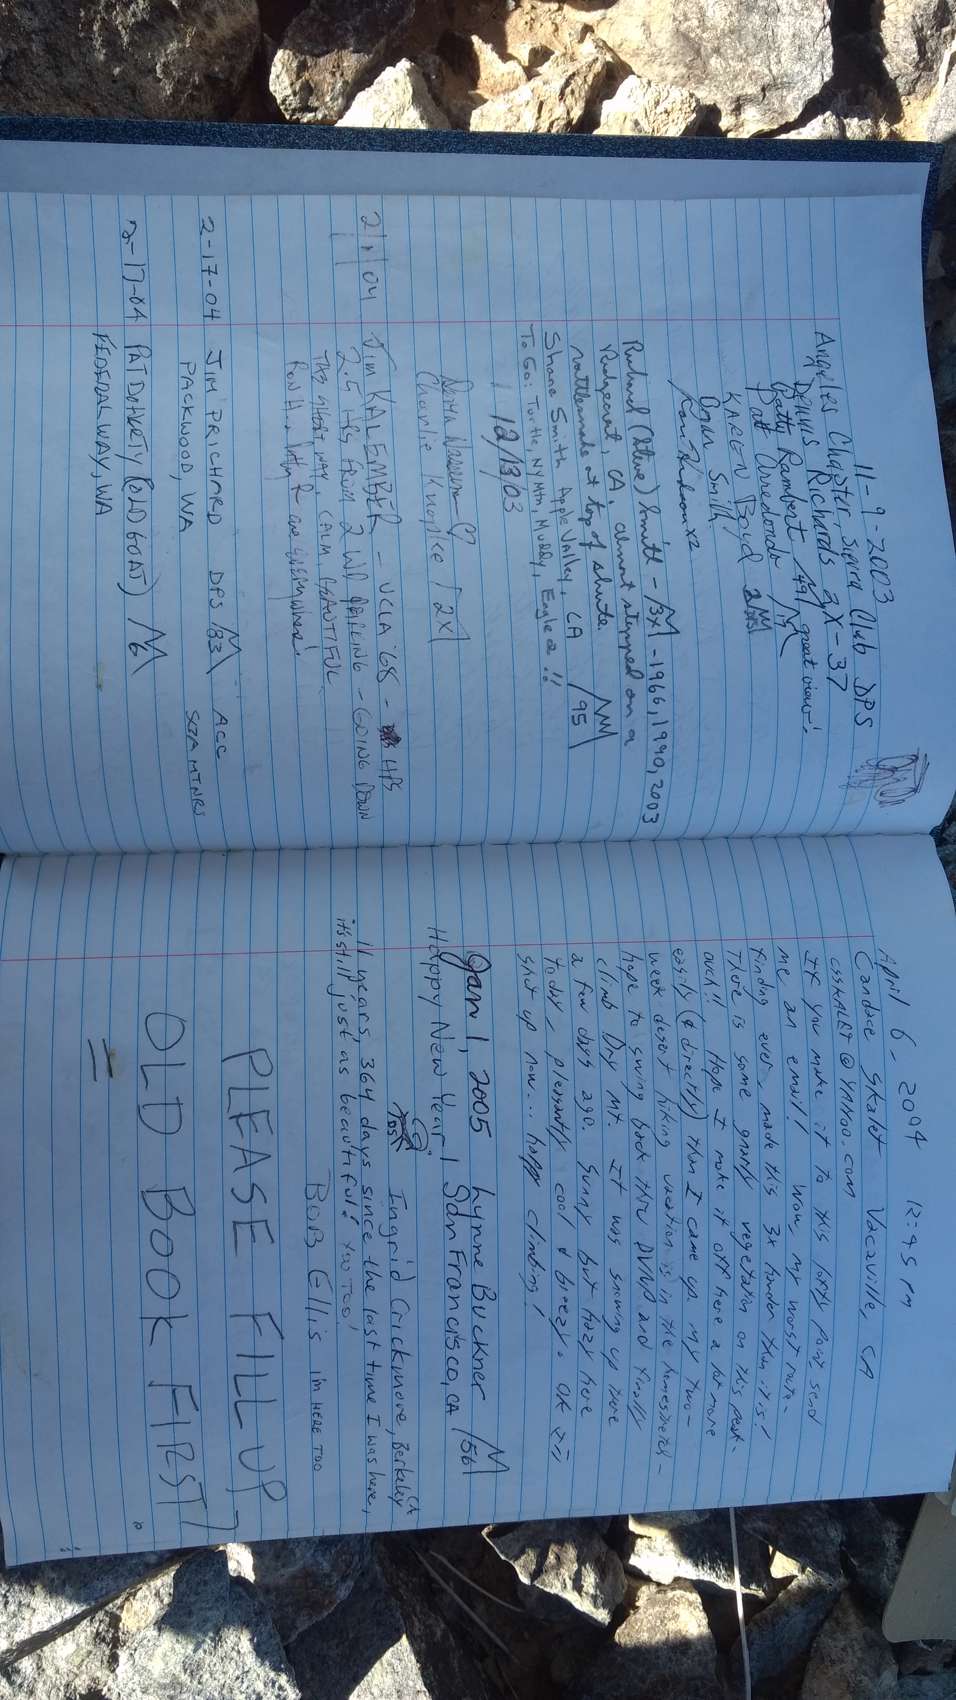 11-9-2003
Angeles Chapter, Sierra Club DPS
Dennis Richards 2X-37
Patty Rambert /49/ great view!
Patt Arredondo
KAREN Boyd
Dan Smith
x2
Richard (Steve) Smith - /3x - 1966, 1990, 2003
Ridgecrest, CA, almost stepped on a
rattlesnake at top of chute.
Shane Smith Apple Valley, CA /95
To Go: Turtle, NY Mtn, Muddy, Eagle 2!!
12/13/03
Charlie Knapke 2X
2/1/04 Jim KALEMBER - UCLA '68 - HPS
2.5 HRS FROM 2 WD PARKING - GOING DOWN
THE SHORT WAY, CALM, BEAUTIFUL
RON H, Patty R are EVERYWHERE!
2-17-04 JIM PRICHARD DPS /33 ACC
PACKWOOD, WA
2-17-04 PAT DOHERTY (OLD GOAT) /6
FEDERALWAY, WA
April 6 - 2004 12:45 pm
Candace Skalet Vacaville, CA
cSSKALET @ YAHOO.com
If you make it to this lofty point send
me an email! Wow, my worst route-
finding ever, made this 3x harder than it is!
There is some gnarly vegetation on this peak.
ouch!! Hope I make it off here a lot more
easily (& directly) than I came up. My two-
week desert hiking vacation is in the homestretch -
hope to swing back thru DVNP and finally
climb Dry Mt. It was snowing up there
a few days ago. Sunny but hazy here
today, pleasantly cool & breezy. OK I'll
shut up now... happy climbing!
Jan 1, 2005 Lynne Buckner /56
Happy New Year! San Francisco, CA
Ingrid Crickmore, Berkeley CA
11 years, 364 days since the last time I was here,
it's still just as beautiful! YOU TOO!
BOB Ellis IM HERE TOO
PLEASE FILL UP
OLD BOOK FIRST